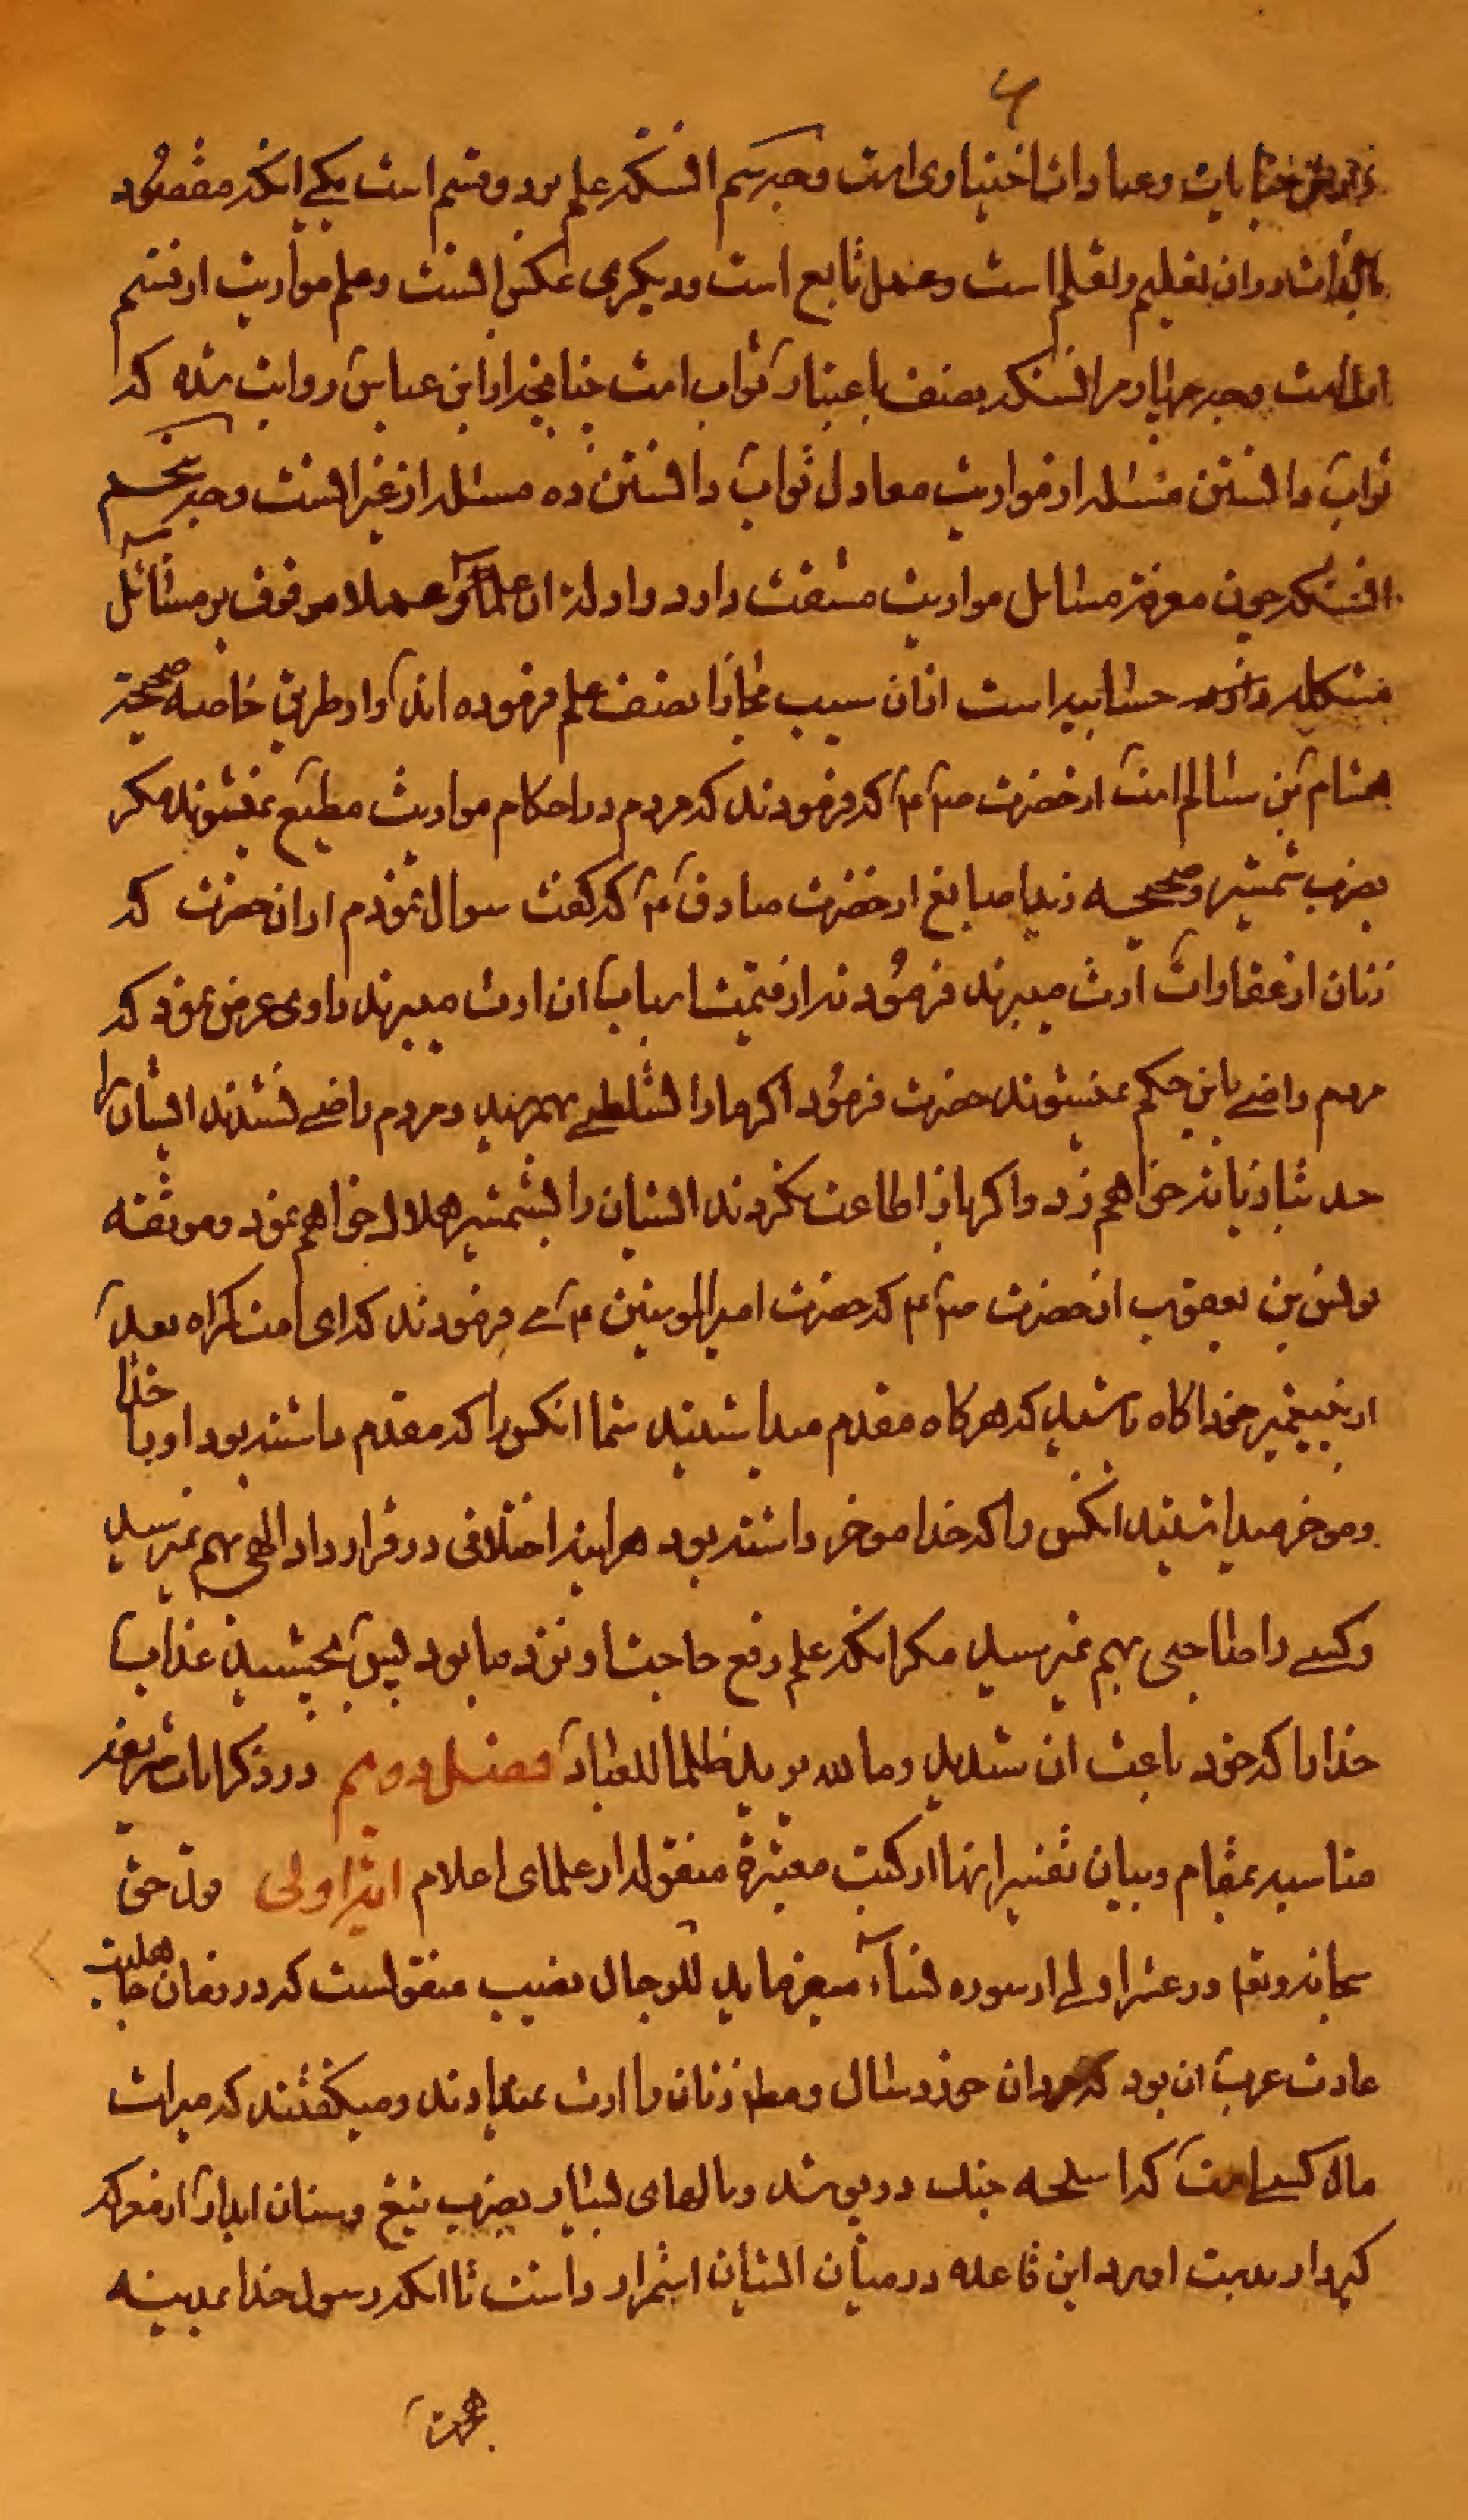 ۶
جنایات و عبادات اختیاری است وجه سیم انستکه علم بر دو قسم است یکی انکه مقصود
بالذات در ان تعلیم و تعلم است و عمل تابع است و دیکری عکس انست و علم مواریث از قسم
اول است وجه چهارم انستکه نصف باعتبار ثواب است چنانچه از ابن عباس روایت شده که
ثواب دانستن مسئله از مواریث معادل ثواب دانستن ده مسئله از غیر انست وجه پنجم
انستکه چون معرفة مسائل مواریث مشقت دارد و ادلهٔ ان علما و عملا موقوف بر مسائل
مشکله حسابیه است از ان سبب مجازا نصف علم فرموده اند و از طریق خاصه صحیحة
هشام بن سالم است از حضرت ص٢ ع٢ که فرمودند که مردم در احکام مواریث مطیع نمیشوند مکر
بضرب شمشیر و صحیحه زید صایغ از حضرت صادق ع٢ که کفت سوال نمودم از ان حضرت که
زنان از عقارات ارث میبرند فرمود نه از قیمت اسباب ان ارث میبرند راوی عرض نمود که
مردم راضی باین حکم نمیشوند حضرت فرمود اکر ما را تسلطی بهم رسد و مردم راضی نشدند ایشان را
حد بتازیانه خواهم زد و اکر باز اطاعت نکردند ایشان را بشمشیر هلاک خواهم نمود و موثقه
یونس بن یعقوب از حضرت ص٢ ع٢ که حضرت امیرالمومنین ع٢ می فرمودند که ای امت کمراه بعد
از پیغمبر خود اکاه باشید که هرکاه مقدم میداشتید شما انکس را که مقدم داشته بود او را خدا
و موخر میداشتید انکس را که خدا موخر داشته بود هراینه اختلافی در قرار داد الهی بهم نمیرسید
و کسی را حاجتی بهم نمیرسید مکر انکه علم رفع حاجت او نزد ما بود پس بچشید عذاب
خدا را که خود باعث ان شدید وما الله یرید ظلما للعباد فصل دویم در ذکر ایات شریفه
مناسبه بمقام و بیان تفسیر انها از کتب معتبرهٔ منقوله از علمای اعلام ایهٔ اولی قول حق
سبحانه وتعا در عشر اولی از سوره نساء میفرماید للرجال نصیب منقولست که در زمان جاهلیت
عادت عرب ان بود که مردان خورد سال و مطلق زنان را ارث نمیدادند و میکفتند که میراث
مال کسی است که اسلحه جنک در پوشد و مالهای بسیار بضرب تیغ و سنان ابدار از معرکه
کیر دار بدست اورد این قاعده در میان ایشان استمرار داشت تا انکه رسول خدا بمدینه
هجرت